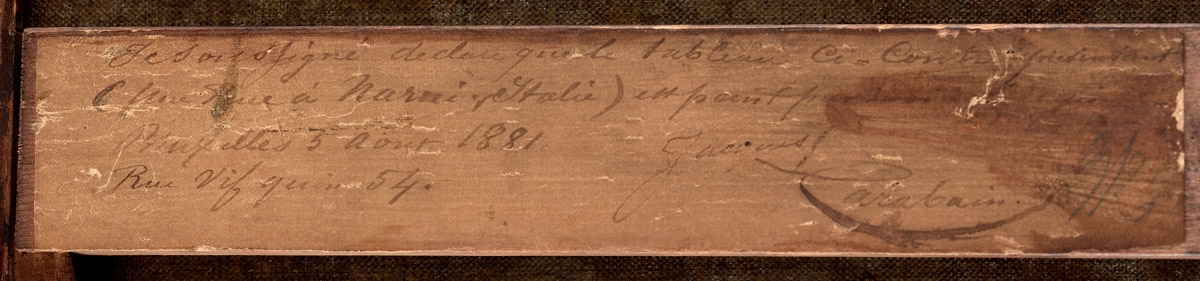 Je soussigné declare que le tableau Ci-Contre
(Une Rue à Narni, Italie) est peint par
Bruxelles 5 Aout 1881. Jacques
Rue Vifquin 54. Carabain.